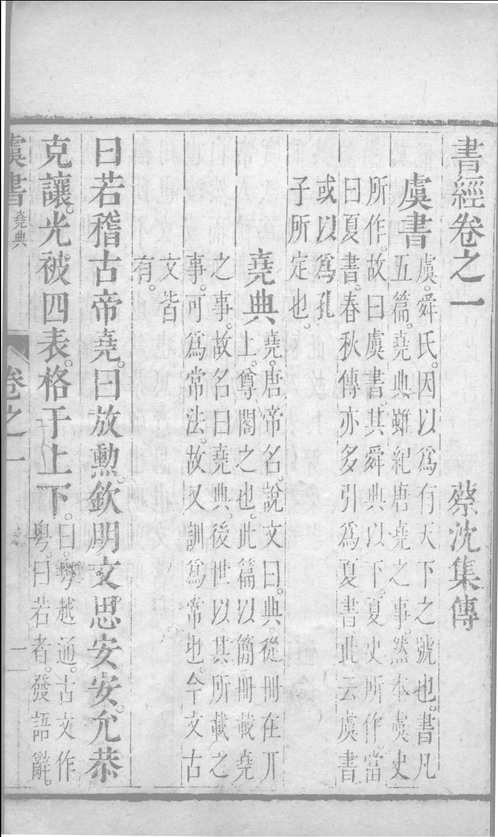 書經卷之一　蔡沈集傳
虞書
虞。舜氏。因以爲有天下之號也。書凡
五篇。堯典雖紀唐堯之事。然本虞史
所作。故曰虞書。其舜典以下。夏史所作。當
曰夏書。春秋傳亦多引爲夏書。此云虞書。
或以爲孔
子所定也。
堯典
堯。唐帝名。說文曰。典從冊在丌
上。尊閣之也。此篇以簡冊載堯
之事。故名曰堯典。後世以其所載之
事。可爲常法。故又訓爲常也。今文古
文皆
有。
曰若稽古帝堯。曰放勳。欽明文思安安。允恭
克讓。光被四表。格于上下。
曰。粵越通。古文作
粵。曰若者。發語辭。
虞書
堯典
卷之一
一